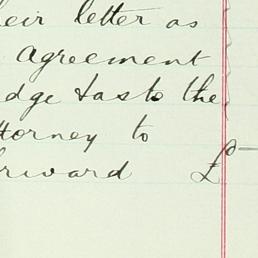 heir letter as
agreement
dge &as to the
ttorney to
rward £